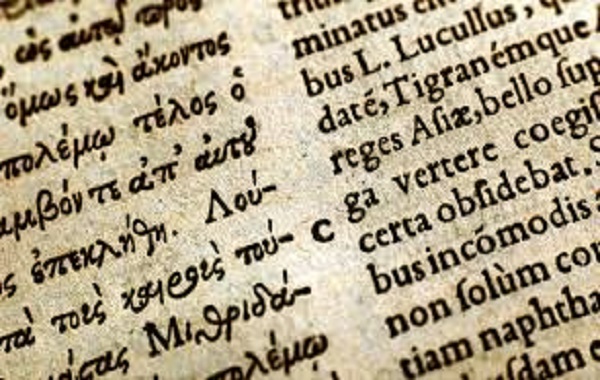 ὡς αὐτοῦ πρὸς
ὅμως καὶ ἄκοντος
πολέμῳ τέλος ὁ
αμβόντε ἀπ' αὐτοῦ
ς ἐπεκλήθη. Λού-
τὰ τοὺς καιροὺς τού-
Μιθριδά-
πολέμῳ
minatus
bus L. Lucullus,
daté, Tigranémque
reges Aſiæ, bello ſup
ga vertere coegiſ
certa obſidebat. S
bus incómodis
non ſolùm con
tiam naphtha
C